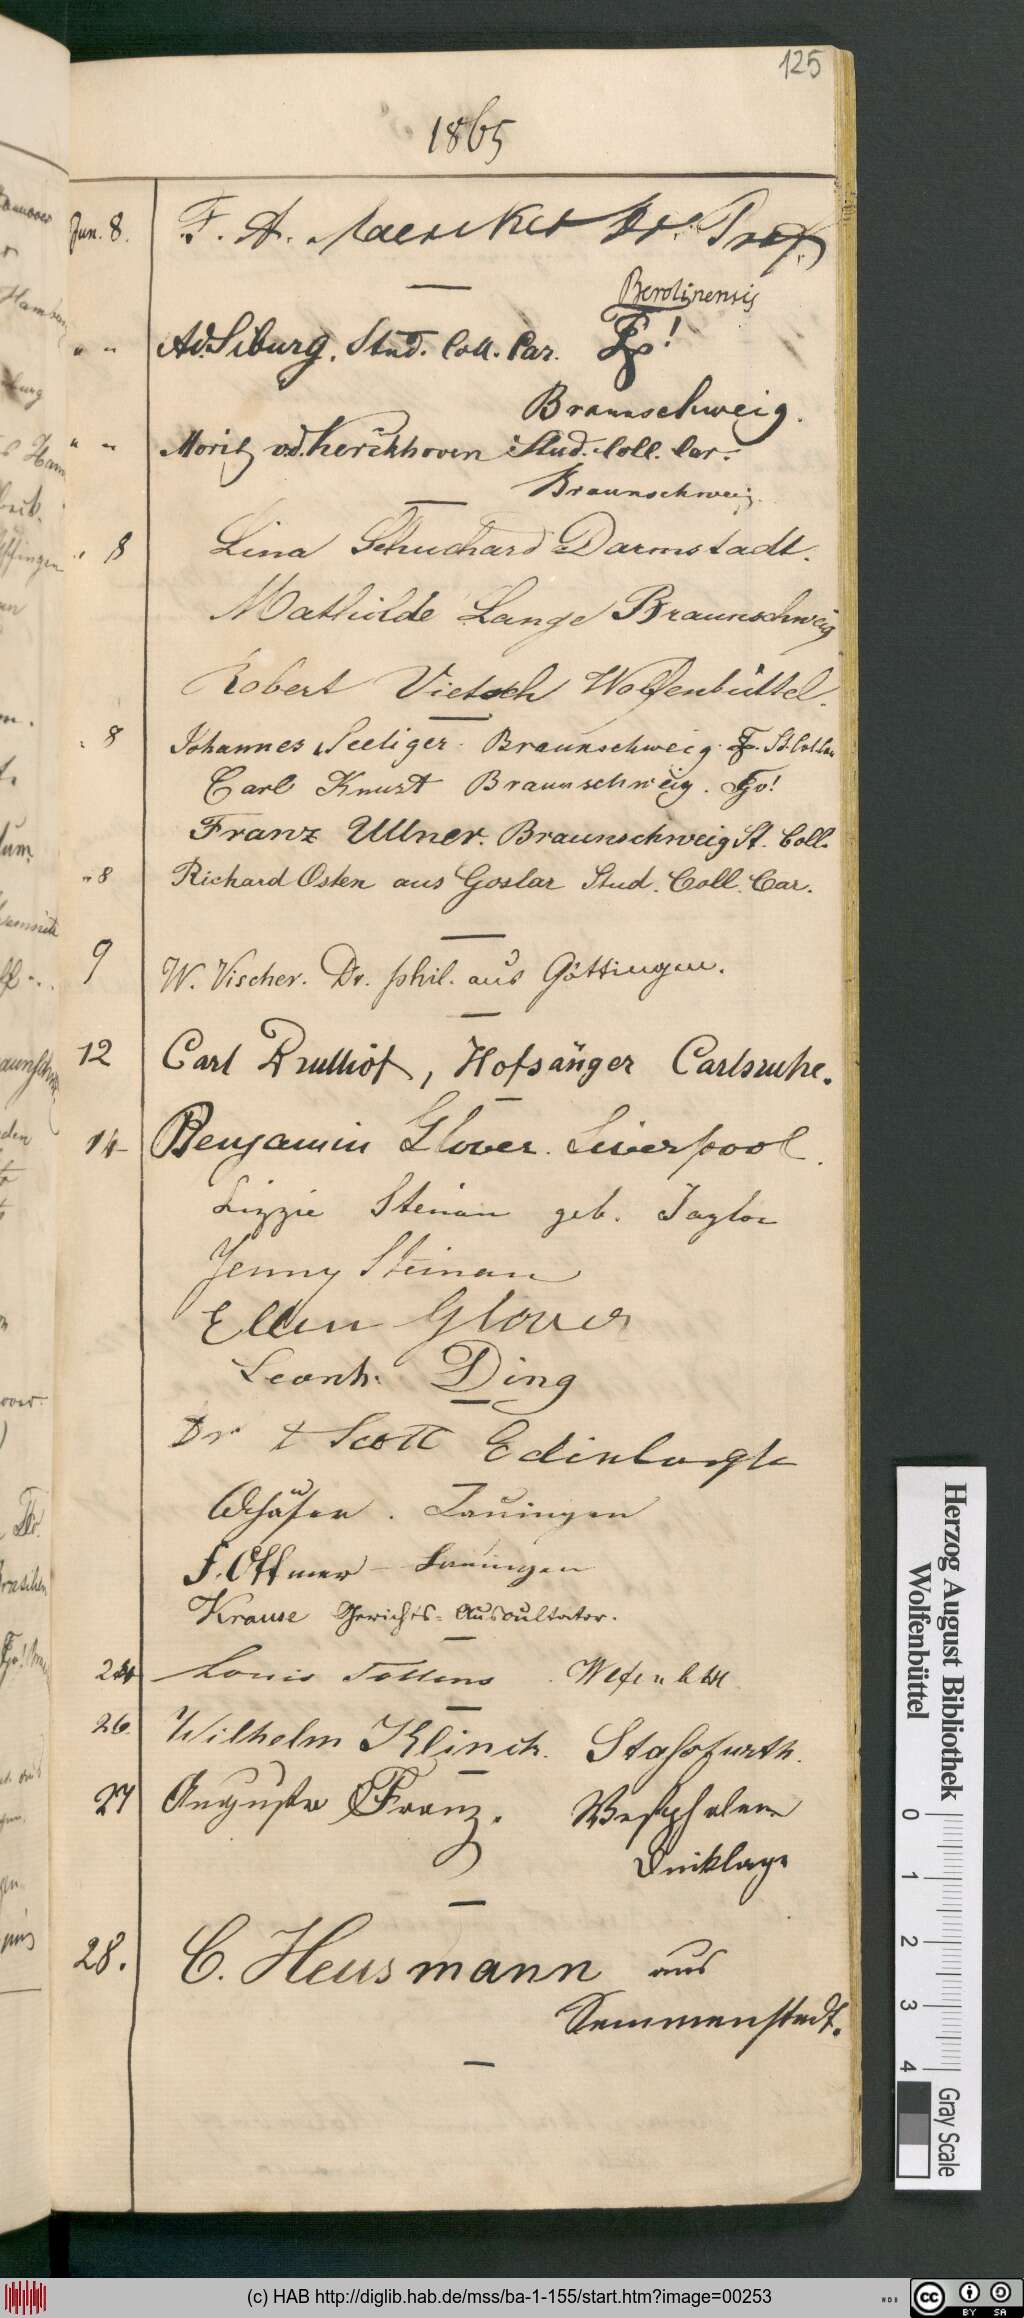 125
1865
Jun. 8. F. A. Maercker Dr. Prof.
Berolinensis
" " Ad. Siburg. Stud. Coll. Car. !
Braunschweig.
" " Moritz v.d. Kerckhoven Stud. Coll. Car.
Braunschweig.
" 8 Lina Schuchard Darmstadt.
Mathilde Lange Braunschweig
Robert Vietsch Wolfenbüttel.
" 8 Johannes Seeliger. Braunschweig.
Carl Knust Braunschweig.
Franz Ullner. Braunschweig St. Coll.
" 8 Richard Osten aus Goslar Stud. Coll. Car.
9 W. Vischer. Dr. phil. aus Göttingen.
12 Carl Brulliot, Hofsänger Carlsruhe.
14 Benjamin Glover. Liverpool.
Lizzie Steinau geb. Taylor
Jenny Steinau
Ellen Glover
Leonh. Ding
Dr Scott Edinburgh
Schäfer.
J. Ottmer
Krause Gerichts-Auscultator.
24 Louis
26. Wilhelm Klinck. Stassfurth.
27 Auguste Franz. Westphalen
Dinklage
28. C. Heusmann aus
Semmenstedt.
Herzog August Bibliothek
Wolfenbüttel
0 1 2 3 4
Gray Scale
(c) HAB http://diglib.hab.de/mss/ba-1-155/start.htm?image=00253
WDB
cc BY SA